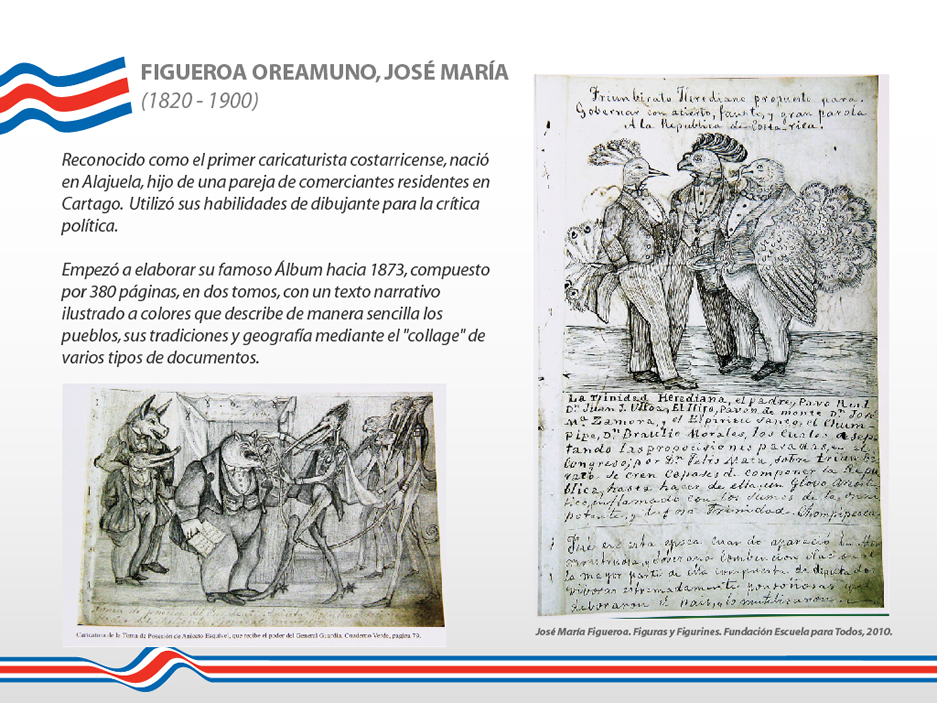 FIGUEROA OREAMUNO, JOSÉ MARÍA
(1820 - 1900)
Reconocido como el primer caricaturista costarricense, nació
en Alajuela, hijo de una pareja de comerciantes residentes en
Cartago. Utilizó sus habilidades de dibujante para la crítica
política.
Empezó a elaborar su famoso Álbum hacia 1873, compuesto
por 380 páginas, en dos tomos, con un texto narrativo
ilustrado a colores que describe de manera sencilla los
pueblos, sus tradiciones y geografía mediante el "collage" de
varios tipos de documentos.
Caricatura de la Toma de Posesión de Aniceto Esquivel, que recibe el poder del General Guardia. Cuaderno Verde, pagina 79.
Triunbirato Herediano propuesto para
Gobernar con acierto, fausto, y gran parola
A la Republica de Costa rica.
La Trinidad Herediana, el padre, Pavo Real
Dn. Juan J. Ulloa, El Hijo, Pavon de monte Dn. José
Ma. Zamora, y el Espiritu Santo, el Chum-
Pipe, Dn. Braulio Morales, los cuales asep
tando las proposiciones pasadas, en el
Congreso, por Dn. Felis Mata, sobre triunbi
rato. se cren Capases de componer la Repu
blica, hasta haser de ella, un Globo
inflamado con los umos de la
potente, y Trinidad Chompipesca.
Fué en esta epoca cuando aparecio
la mayor parte de ella compuesta de diputados
viboras estremadamente ponsoñosas que
deboraron el pais, y lo mutilizaron.
José María Figueroa. Figuras y Figurines. Fundación Escuela para Todos, 2010.